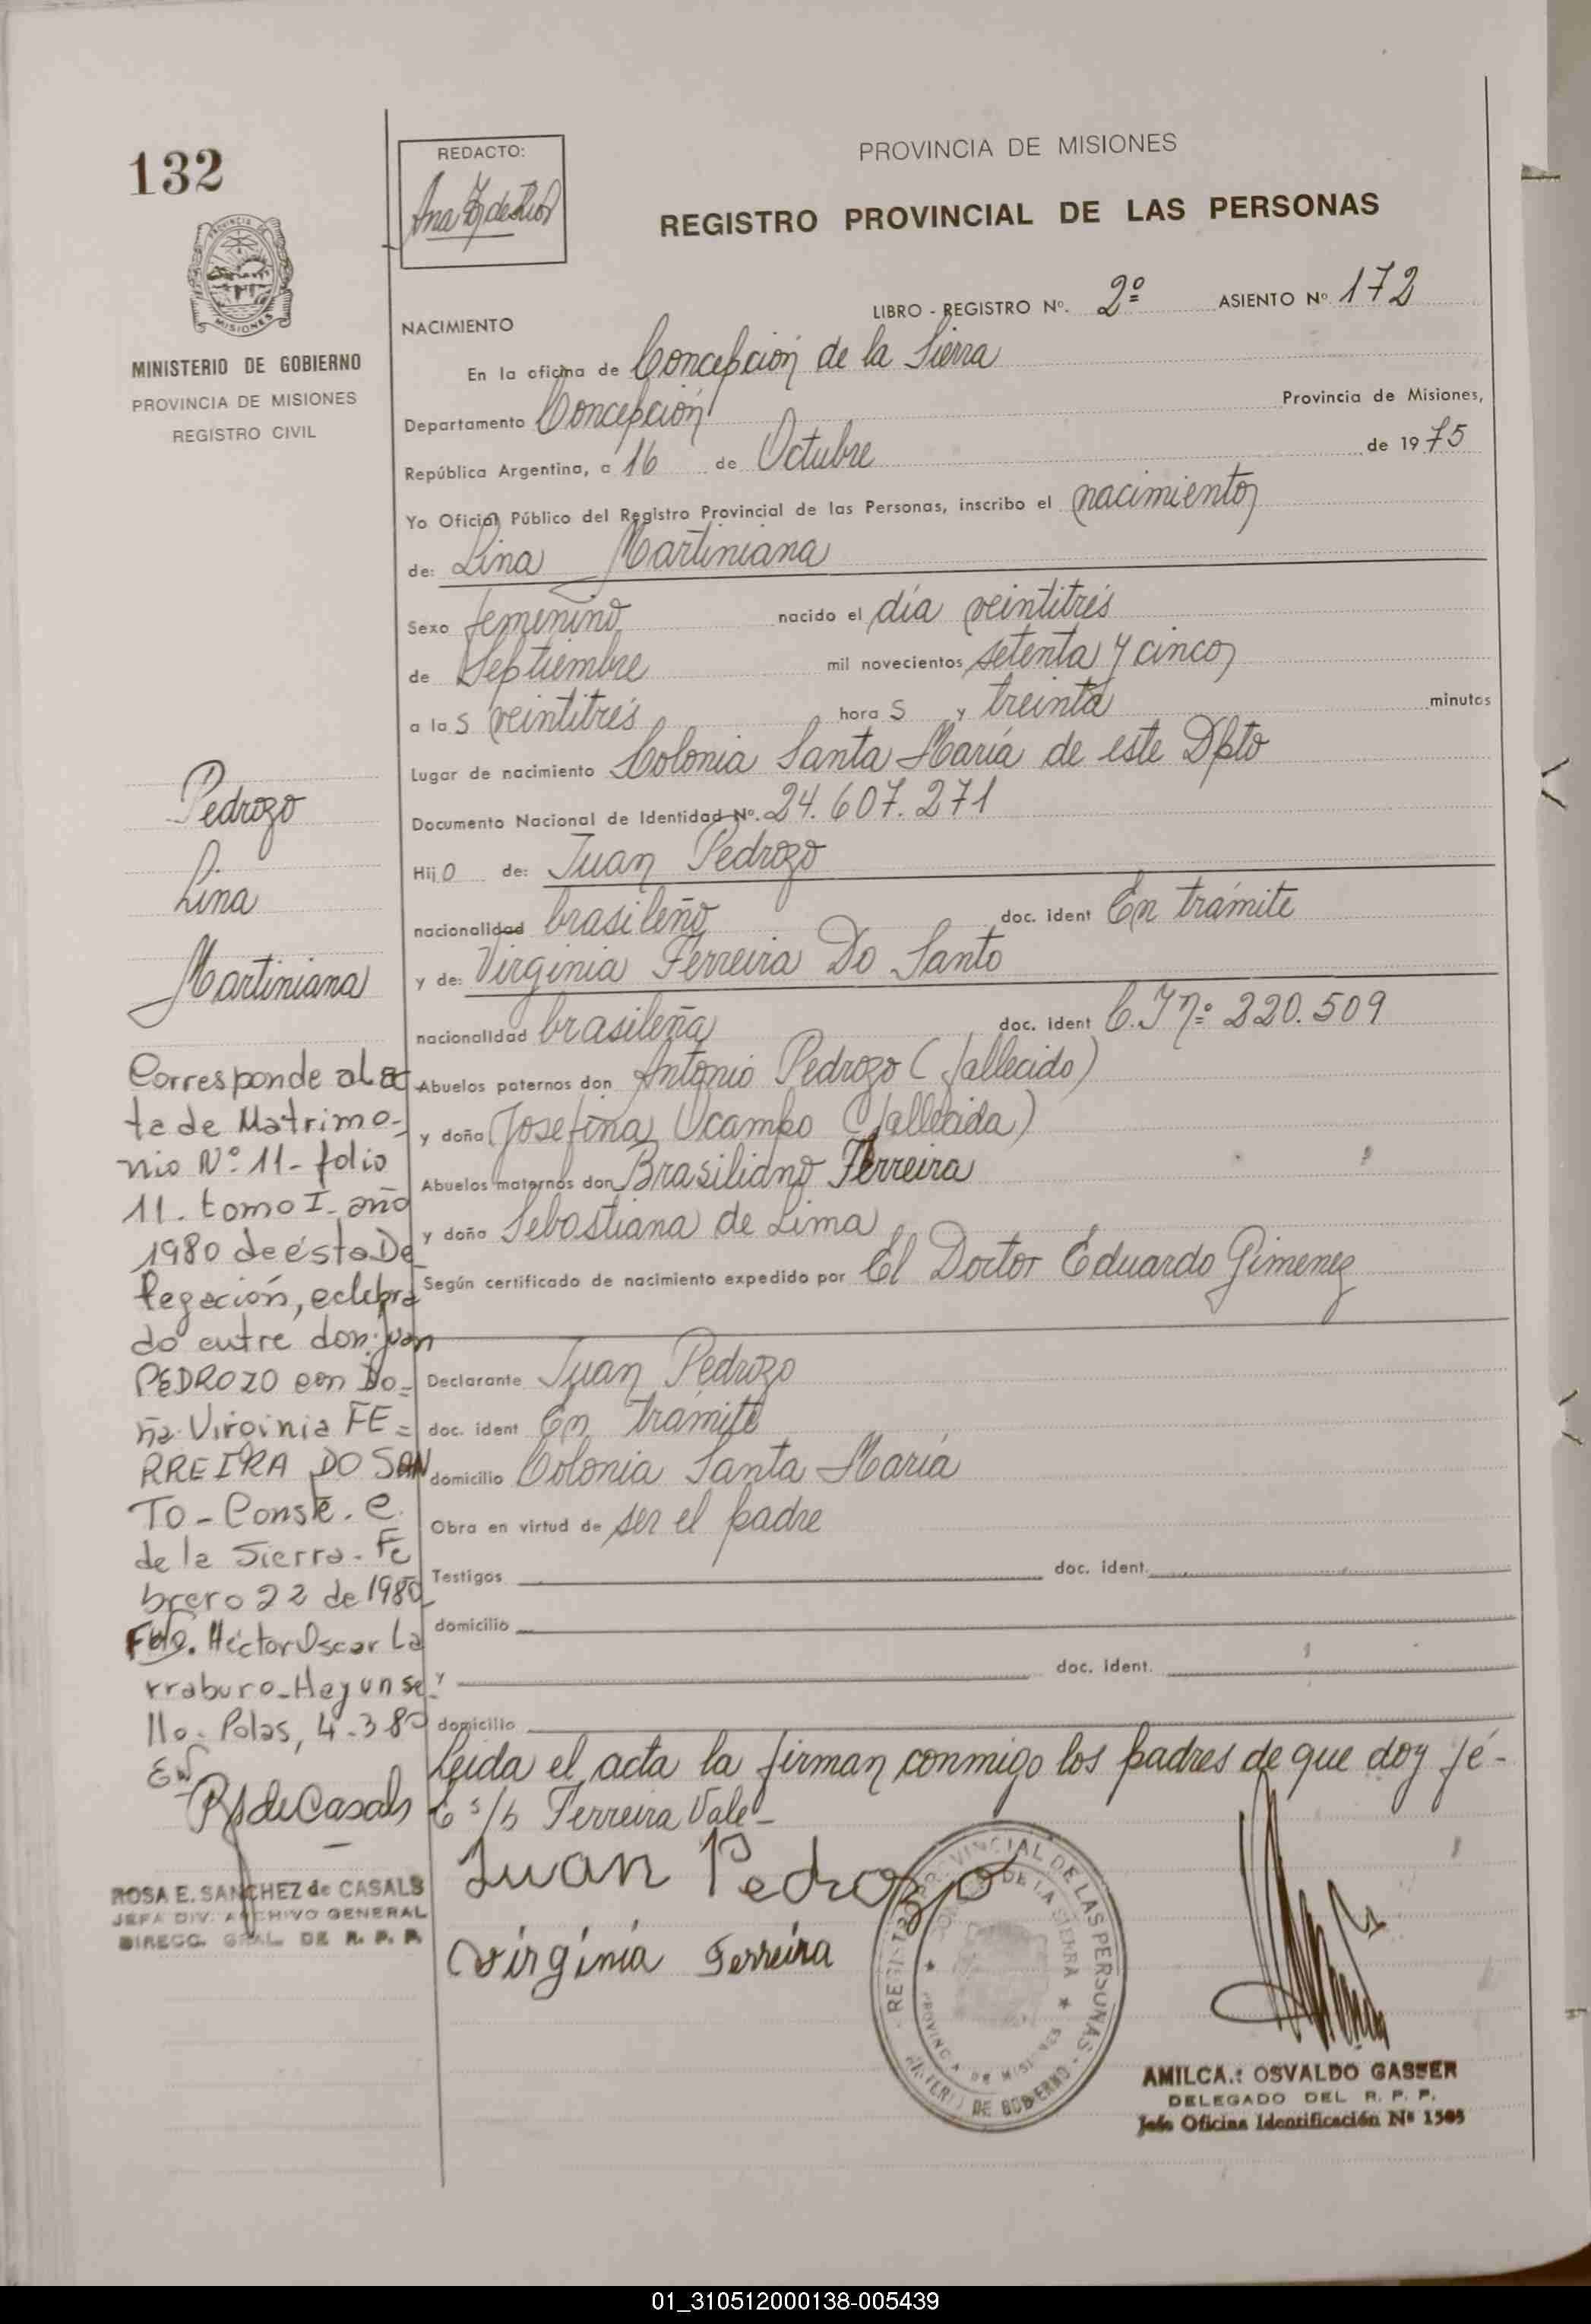 132
REDACTO:
Ana
PROVINCIA DE MISIONES
REGISTRO PROVINCIAL DE LAS PERSONAS
MISIONES
MINISTERIO DE GOBIERNO
PROVINCIA DE MISIONES
REGISTRO CIVIL
LIBRO - REGISTRO Nº. 2º ASIENTO Nº 172
NACIMIENTO
En la oficina de Concepción de la Sierra
Departamento Concepción Provincia de Misiones,
República Argentina, a 16 de Octubre de 1975
Yo Oficial Público del Registro Provincial de las Personas, inscribo el nacimiento
de: Lina Martiniana
Sexo femenino nacido el día veintitrés
de Septiembre mil novecientos setenta y cinco
a las veintitrés horas y treinta minutos
Lugar de nacimiento Colonia Santa María de este Dpto
Documento Nacional de Identidad Nº. 24.607.271
Hijo de: Juan Pedrozo
nacionalidad brasileño doc. ident En trámite
y de: Virginia Ferreira Do Santo
nacionalidad brasileña doc. ident C.I nº 220.509
Abuelos paternos don Antonio Pedrozo (fallecido)
y doña Josefina Ocampo (fallecida)
Abuelos maternos don Brasiliano Ferreira
y doña Sebastiana de Lima
Según certificado de nacimiento expedido por El Doctor Eduardo Gimenez
Declarante Juan Pedrozo
doc. ident En trámite
domicilio Colonia Santa María
Obra en virtud de ser el padre
Testigos doc. ident.
domicilio
y doc. ident.
domicilio
Leida el acta la firman conmigo los padres de que doy fé-
s/b Ferreira Vale-
Juan Pedrozo
Virginia Ferreira
Pedrozo
Lina
Martiniana
Corresponde al ac
ta de Matrimo-
nio Nº 11- folio
11. tomo I- año
1980 de ésta De
legación, celebra
do entre don: Juan
PEDROZO con Do=
ña Virginia FE=
RREIRA DO SAN
TO- Conste. C.
de la Sierra- Fe
brero 22 de 1980
Fdo. Héctor Oscar La
rraburo-Hay un se
llo- Posas, 4-3-80
R S de Casals
ROSA E. SANCHEZ de CASALS
JEFA DIV. ARCHIVO GENERAL
DIRECC. GRAL. DE R. P. P.
REGISTRO PROVINCIAL DE LAS PERSONAS
DE LA SIERRA
PROVINCIA DE MISIONES
MINISTERIO DE GOBIERNO
AMILCA.: OSVALDO GASSER
DELEGADO DEL R. P. P.
Jefe Oficina Identificación Nº 1505
01_310512000138-005439